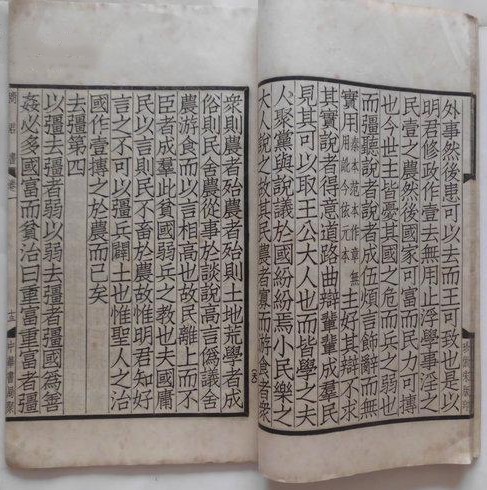 外事然後患可以去而王可致也是以
明君修政作壹去無用止浮學事淫之
民壹之農然後國家可富而民力可摶
也今世主皆憂其國之危而兵之弱也
而彊聽說者說者成伍煩言飾辭而無
實用秦本范本作章無用訛今依元本主好其辯不求
其實說者得意道路曲辯輩輩成羣民
見其可以取王公大人也而皆學之夫
人聚黨與說議於國紛紛焉小民樂之
大人說之故其民農者寡而游食者衆
衆則農者殆農者殆則土地荒學者成
俗則民舍農從事於談說高言僞議舍
農游食而以言相高也故民離上而不
臣者成羣此貧國弱兵之教也夫國庸
民以言則民不畜於農故惟明君知好
言之不可以彊兵闢土也惟聖人之治
國作壹摶之於農而已矣
去彊第四
以彊去彊者弱以弱去彊者彊國為善
姦必多國富而貧治曰重富重富者彊
商君書 卷一 十三 中華書局聚